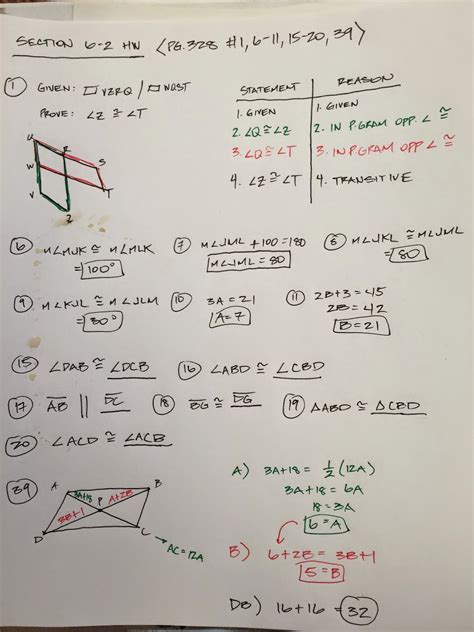 SECTION 6-2 HW (PG.328 #1, 6-11, 15-20, 39)
① GIVEN: ▱VZRQ / ▱WQST
PROVE: ∠Z ≅ ∠T
STATEMENT | REASON
1. GIVEN | 1. GIVEN
2. ∠Q ≅ ∠Z | 2. IN P.GRAM OPP. ∠ ≅
3. ∠Q ≅ ∠T | 3. IN P.GRAM OPP. ∠ ≅
4. ∠Z ≅ ∠T | 4. TRANSITIVE
Q R S W T V Z
⑥ M∠MJK ≅ M∠MLK
= 100°
⑦ M∠JML + 100 = 180
M∠JML = 80
⑧ M∠JKL ≅ M∠JML
= 80
⑨ M∠KJL ≅ M∠JLM
= 30°
⑩ 3A = 21
A = 7
⑪ 2B + 3 = 45
2B = 42
B = 21
⑮ ∠DAB ≅ ∠DCB
⑯ ∠ABD ≅ ∠CBD
⑰ AB || DC
⑱ BG ≅ DG
⑲ △ABD ≅ △CBD
⑳ ∠ACD ≅ ∠ACB
㊴ A B
3A+18 P A+2B
3B+1
D C
AC = 12A
A) 3A + 18 = ½ (12A)
3A + 18 = 6A
18 = 3A
6 = A
B) 6 + 2B = 3B + 1
5 = B
DB) 16 + 16 = 32